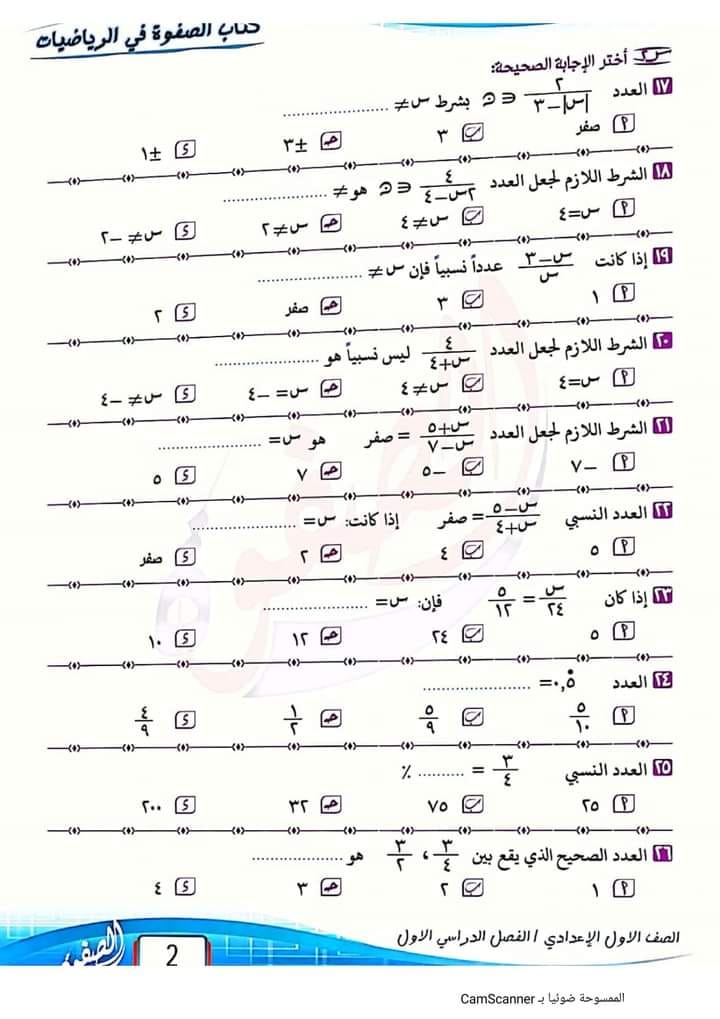 كتاب الصفوة في الرياضيات
س٢ أختر الإجابة الصحيحة:
١٧ العدد ٢/(|س|−٣) ∈ ن بشرط س ≠ ..................
أ صفر ب ٣ جـ ±٣ د ±١
١٨ الشرط اللازم لجعل العدد ٤/(٢س−٤) ∈ ن هو ≠ ..................
أ س=٤ ب س≠٤ جـ س≠٢ د س≠−٢
١٩ إذا كانت (س−٣)/س عدداً نسبياً فإن س ≠ ..................
أ ١ ب ٣ جـ صفر د ٢
٢٠ الشرط اللازم لجعل العدد ٤/(س+٤) ليس نسبياً هو ..................
أ س=٤ ب س≠٤ جـ س=−٤ د س≠−٤
٢١ الشرط اللازم لجعل العدد (س+٥)/(س−٧) = صفر هو س= ..................
أ −٧ ب −٥ جـ ٧ د ٥
٢٢ العدد النسبي (س−٥)/(س+٤) = صفر إذا كانت: س= ..................
أ ٥ ب ٤ جـ ٢ د صفر
٢٣ إذا كان س/٢٤ = ٥/١٢ فإن: س= ..................
أ ٥ ب ٢٤ جـ ١٢ د ١٠
٢٤ العدد ٠,٥̇ = ..................
أ ٥/١٠ ب ٥/٩ جـ ١/٢ د ٤/٩
٢٥ العدد النسبي ٣/٤ = .......... ٪
أ ٢٥ ب ٧٥ جـ ٣٢ د ٢٠٠
العدد الصحيح الذي يقع بين ٣/٤ ، ٣/٢ هو ..................
أ ١ ب ٢ جـ ٣ د ٤
الصف الاول الإعدادي / الفصل الدراسي الاول
2
الصفوة
الممسوحة ضوئيا بـ CamScanner